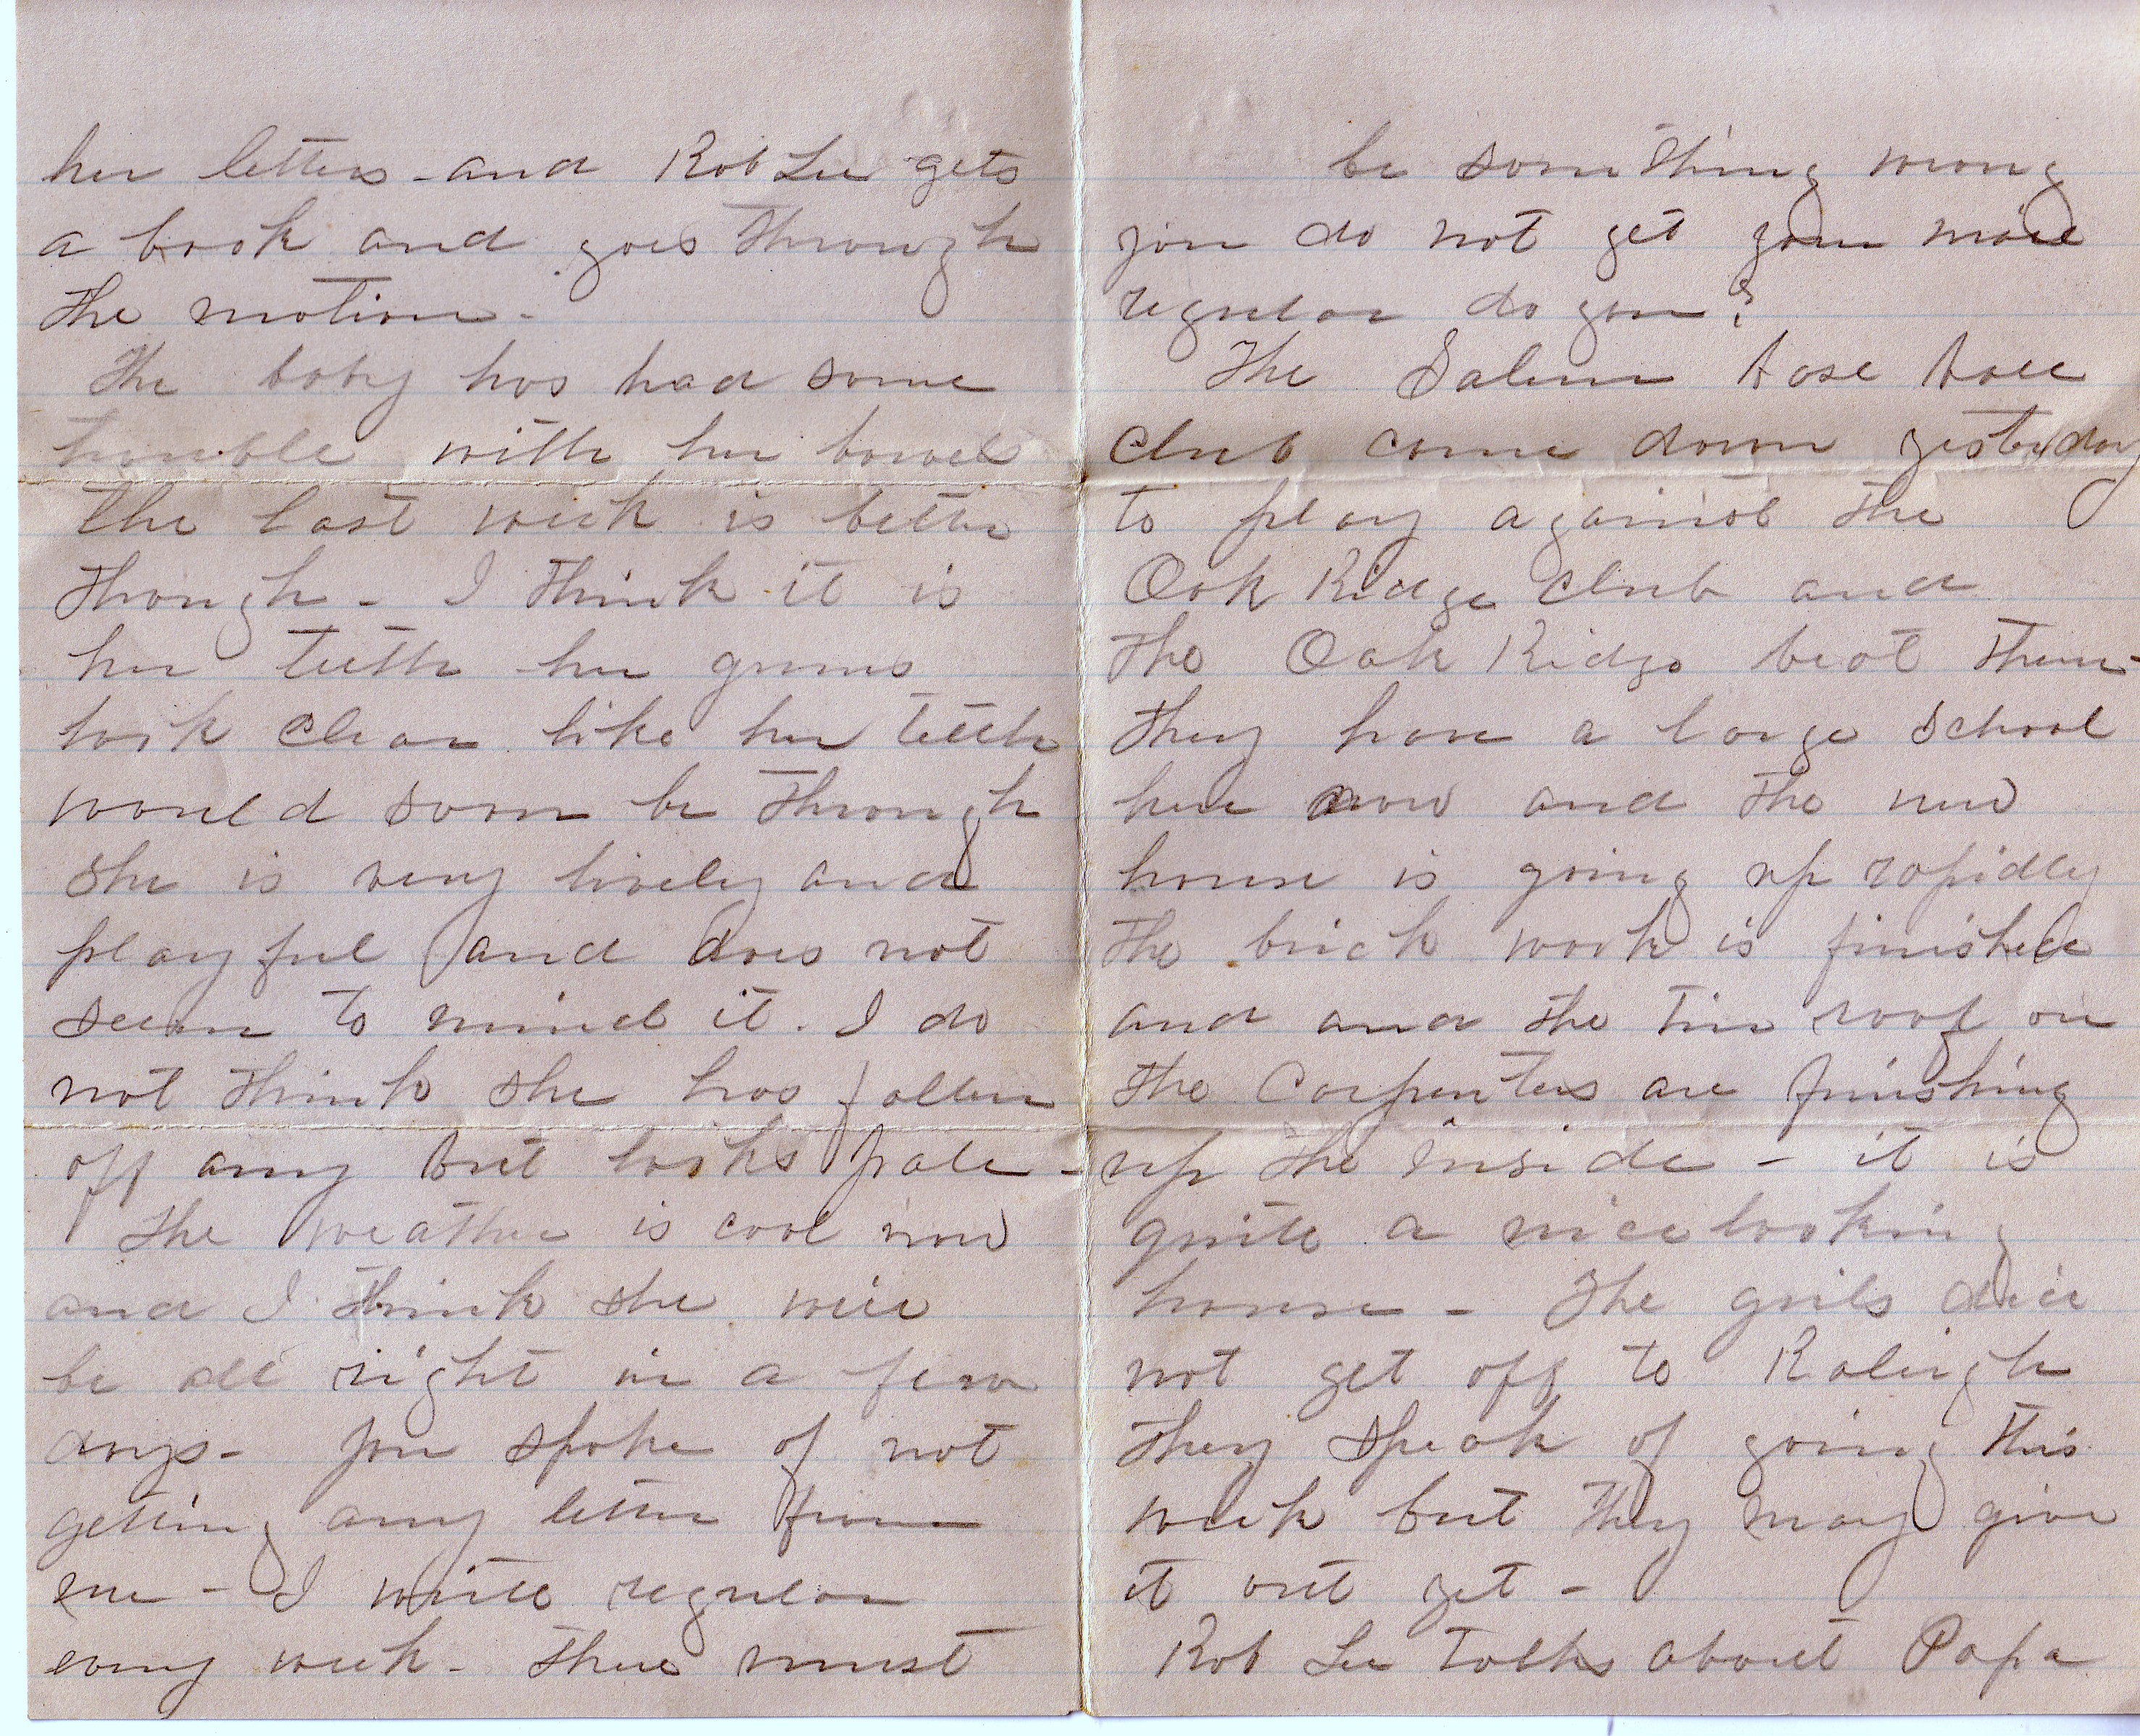 her letters - and Rob Lee gets
a book and goes through
the motion -
The baby has had some
trouble with her bowels
the last week is better
though - I think it is
her teeth her gums
look clear like her teeth
would soon be through
she is very lively and
playful and does not
seem to mind it. I do
not think she has fallen
off any but looks pale -
The weather is cool now
and I think she will
be all right in a few
days - you spoke of not
getting any letter from
me - I write regular
every week - there must
be something wrong
you do not get your mail
regular do you?
The Salem base ball
club came down yesterday
to play against the
Oak Ridge club and
the Oak Ridge beat them -
they have a large school
here now and the new
house is going up rapidly
the brick work is finished
and and the tin roof on
the Carpenters are finishing
up the inside - it is
quite a nice looking
house - The girls did
not get off to Raleigh
they speak of going this
week but they may give
it out yet -
Rob Lee talks about Papa